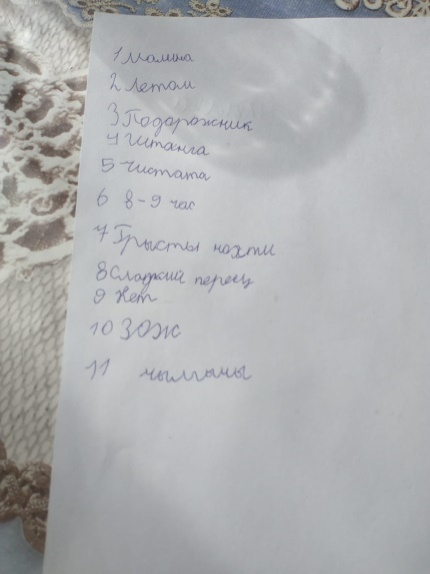 1 Малина
2 Летом
3 Подорожник
4 Штанга
5 Чистата
6 8-9 час
7 Грысты нохти
8 Сладкий перец
9 Нет
10 ЗОЖ
11